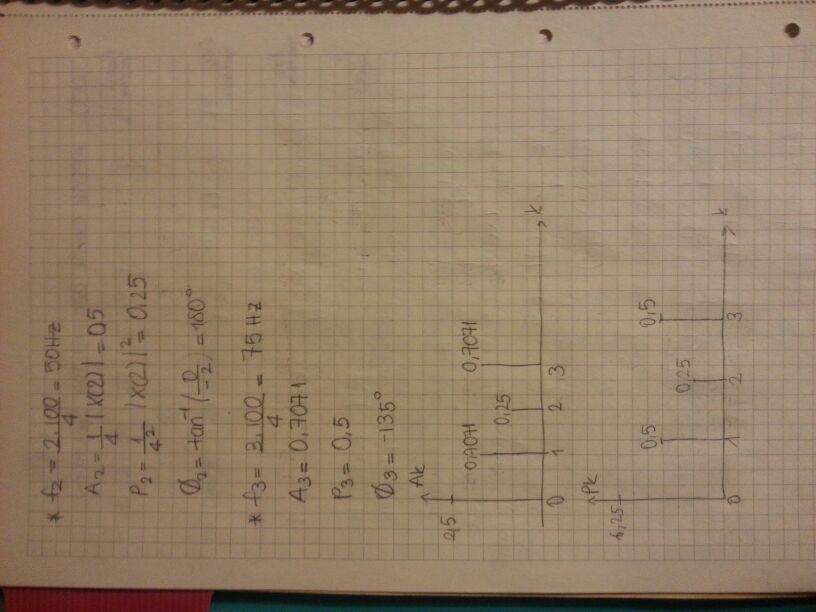 * f₂ = 2.100/4 = 50Hz
A₂ = 1/4 |X(2)| = 0,5
P₂ = 1/4² |X(2)|² = 0,25
Ø₂ = tan⁻¹(0/-2) = 180°
* f₃ = 3.100/4 = 75 Hz
A₃ = 0,7071
P₃ = 0,5
Ø₃ = -135°
Ak
2,5
0,7071 0,25 0,7071
0 1 2 3 k
Pk
6,25
0,5 0,25 0,5
0 1 2 3 k